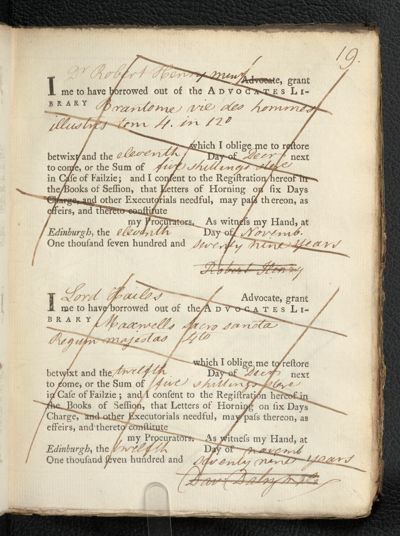 19.
I Dr Robert Henry minr Advocate, grant
me to have borrowed out of the ADVOCATES LI-
BRARY Brantome vie des hommes
illustres tom 4. in 12o
which I oblige me to reſtore
betwixt and the eleventh Day of Decr next
to come, or the Sum of five shillings ster
in Caſe of Failzie; and I conſent to the Regiſtration hereof in
the Books of Seſſion, that Letters of Horning on ſix Days
Charge, and other Executorials needful, may paſs thereon, as
effeirs, and thereto conſtitute
my Procurators. As witneſs my Hand, at
Edinburgh, the eleventh Day of Novemb.
One thouſand ſeven hundred and seventy nine years
Robert Henry
I Lord Hailes Advocate, grant
me to have borrowed out of the ADVOCATES LI-
BRARY Maxwells sacro sancta
Regum majestas 4to
which I oblige me to reſtore
betwixt and the twelfth Day of Decr next
to come, or the Sum of five shillings ster
in Caſe of Failzie; and I conſent to the Regiſtration hereof in
the Books of Seſſion, that Letters of Horning on ſix Days
Charge, and other Executorials needful, may paſs thereon, as
effeirs, and thereto conſtitute
my Procurators. As witneſs my Hand, at
Edinburgh, the twelfth Day of novemb
One thouſand ſeven hundred and seventy nine years
Dav: Dalrymple